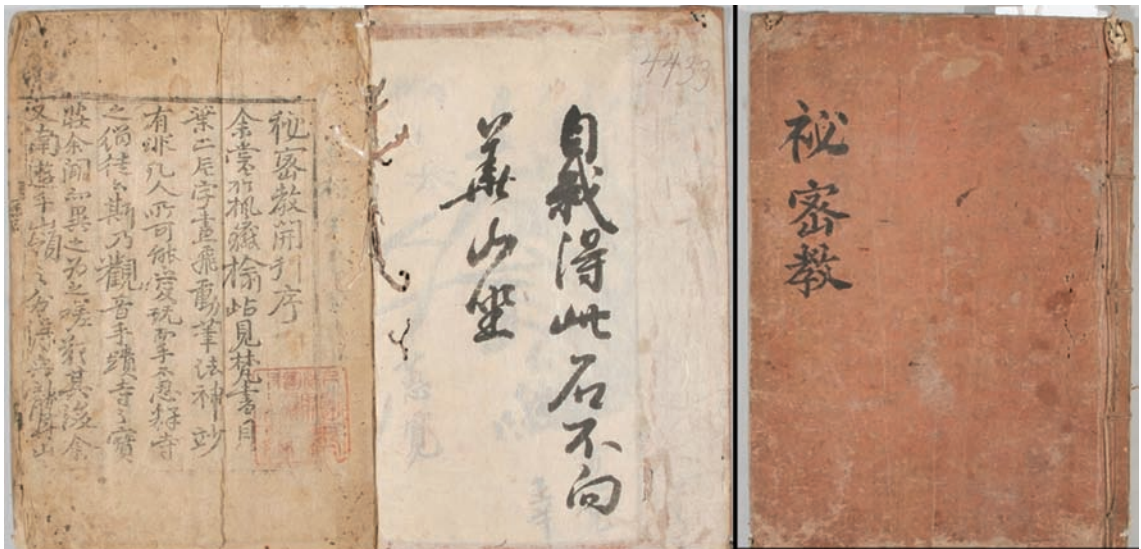 祕密教
4433
自栽得此石不向
華山坐
秘密教開刊序
余嘗於楓嶽榆岾見梵書貝
葉二片字畫飛動筆法神妙
有非凡人所可能愛玩不忍釋寺
之緇徒曰斯乃觀音手蹟寺之寶
藏余聞而異之為之嗟歎其後余
又南遊乎嶺之